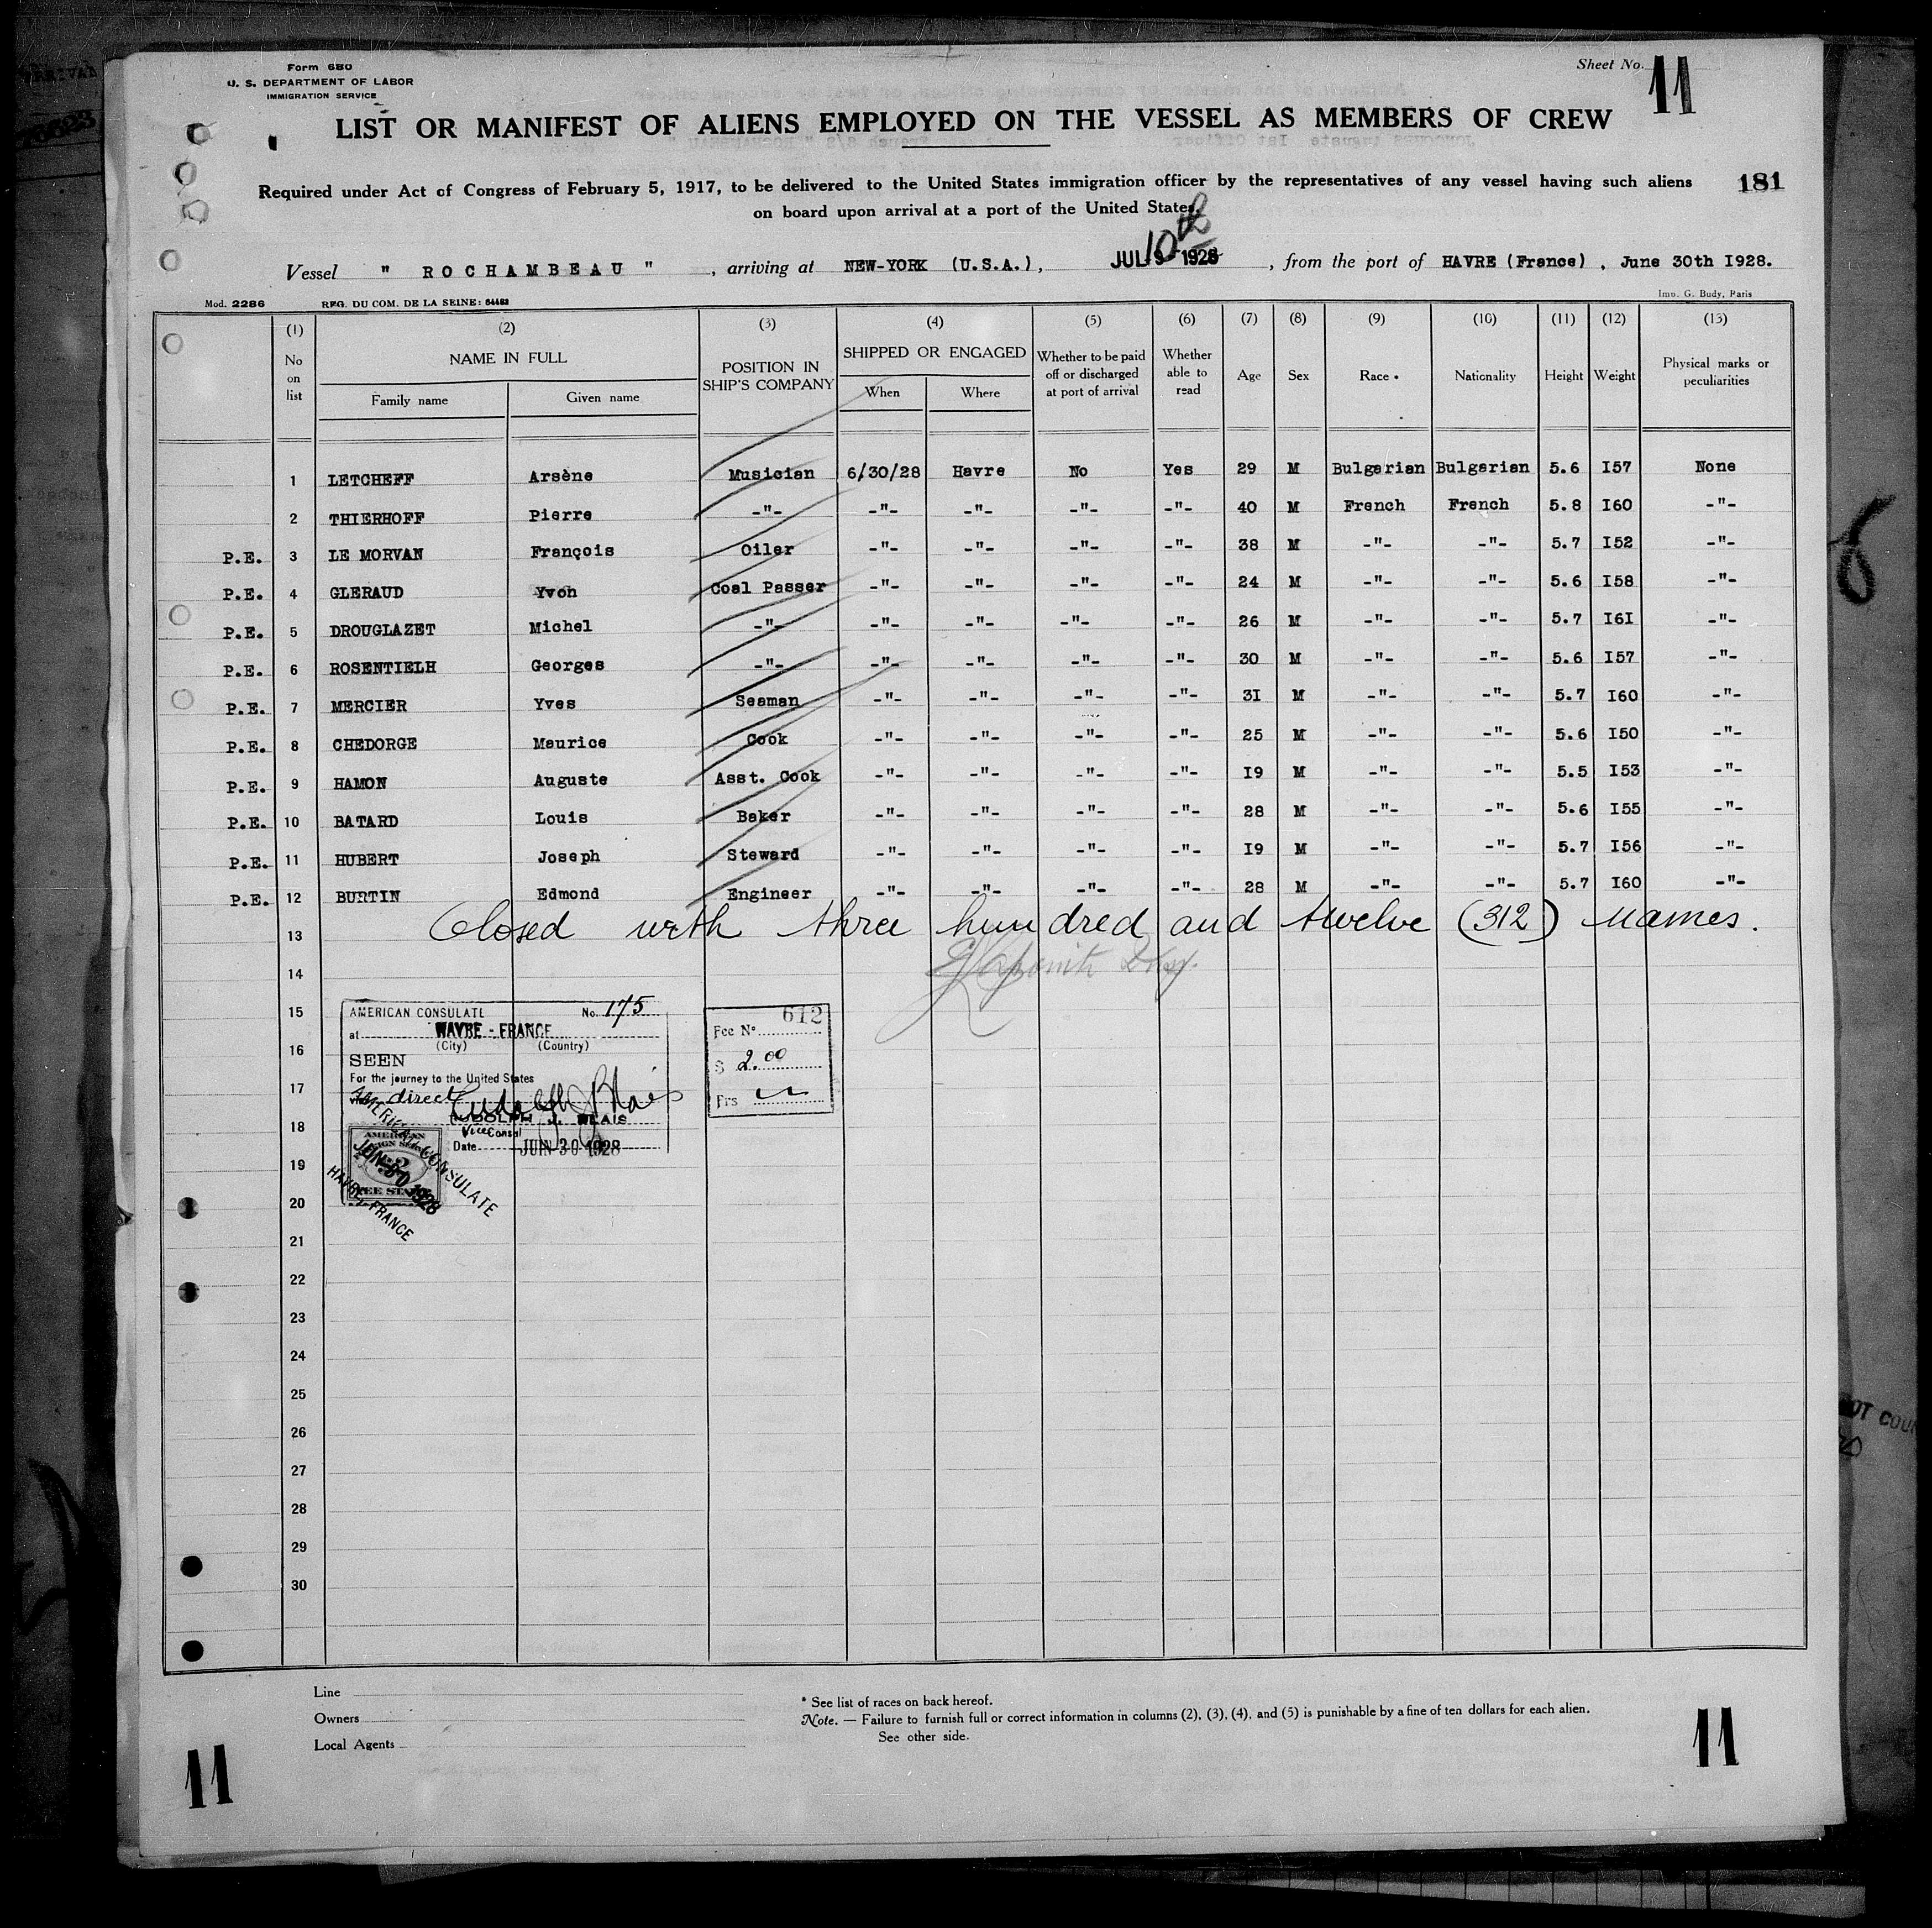 Form 680
U. S. DEPARTMENT OF LABOR
IMMIGRATION SERVICE
Sheet No. 11
LIST OR MANIFEST OF ALIENS EMPLOYED ON THE VESSEL AS MEMBERS OF CREW
Required under Act of Congress of February 5, 1917, to be delivered to the United States immigration officer by the representatives of any vessel having such aliens
on board upon arrival at a port of the United States.
181
Vessel " ROCHAMBEAU ", arriving at NEW-YORK (U.S.A.), JUL 10th 1928, from the port of HAVRE (France), June 30th I928.
Mod. 2286 REG. DU COM. DE LA SEINE: 64483 Imp. G. Budy, Paris
(1) (2) (3) (4) (5) (6) (7) (8) (9) (10) (11) (12) (13)
No on list NAME IN FULL POSITION IN SHIP'S COMPANY SHIPPED OR ENGAGED Whether to be paid off or discharged at port of arrival Whether able to read Age Sex Race * Nationality Height Weight Physical marks or peculiarities
Family name Given name When Where
1 LETCHEFF Arsène Musician 6/30/28 Havre No Yes 29 M Bulgarian Bulgarian 5.6 I57 None
2 THIERHOFF Pierre -"- -"- -"- -"- -"- 40 M French French 5.8 I60 -"-
P.E. 3 LE MORVAN François Oiler -"- -"- -"- -"- 38 M -"- -"- 5.7 I52 -"-
P.E. 4 GLERAUD Yvon Coal Passer -"- -"- -"- -"- 24 M -"- -"- 5.6 I58 -"-
P.E. 5 DROUGLAZET Michel -"- -"- -"- -"- -"- 26 M -"- -"- 5.7 I6I -"-
P.E. 6 ROSENTIELH Georges -"- -"- -"- -"- -"- 30 M -"- -"- 5.6 I57 -"-
P.E. 7 MERCIER Yves Seaman -"- -"- -"- -"- 3I M -"- -"- 5.7 I60 -"-
P.E. 8 CHEDORGE Maurice Cook -"- -"- -"- -"- 25 M -"- -"- 5.6 I50 -"-
P.E. 9 HAMON Auguste Asst. Cook -"- -"- -"- -"- I9 M -"- -"- 5.5 I53 -"-
P.E. 10 BATARD Louis Baker -"- -"- -"- -"- 28 M -"- -"- 5.6 I55 -"-
P.E. 11 HUBERT Joseph Steward -"- -"- -"- -"- I9 M -"- -"- 5.7 I56 -"-
P.E. 12 BURTIN Edmond Engineer -"- -"- -"- -"- 28 M -"- -"- 5.7 I60 -"-
Closed with three hundred and twelve (312) names.
13
14
15
16
17
18
19
20
21
22
23
24
25
26
27
28
29
30
AMERICAN CONSULATE No. 175
at HAVRE - FRANCE
(City) (Country)
SEEN
For the journey to the United States
via direct
RUDOLPH J. BLAIS
Vice Consul
Date JUN 30 1928
AMERICAN CONSULATE
JUN 30 1928
HAVRE, FRANCE
Fee No. 612
$ 2.00
Frs
Line
Owners
Local Agents
* See list of races on back hereof.
Note. — Failure to furnish full or correct information in columns (2), (3), (4), and (5) is punishable by a fine of ten dollars for each alien.
See other side.
11
11